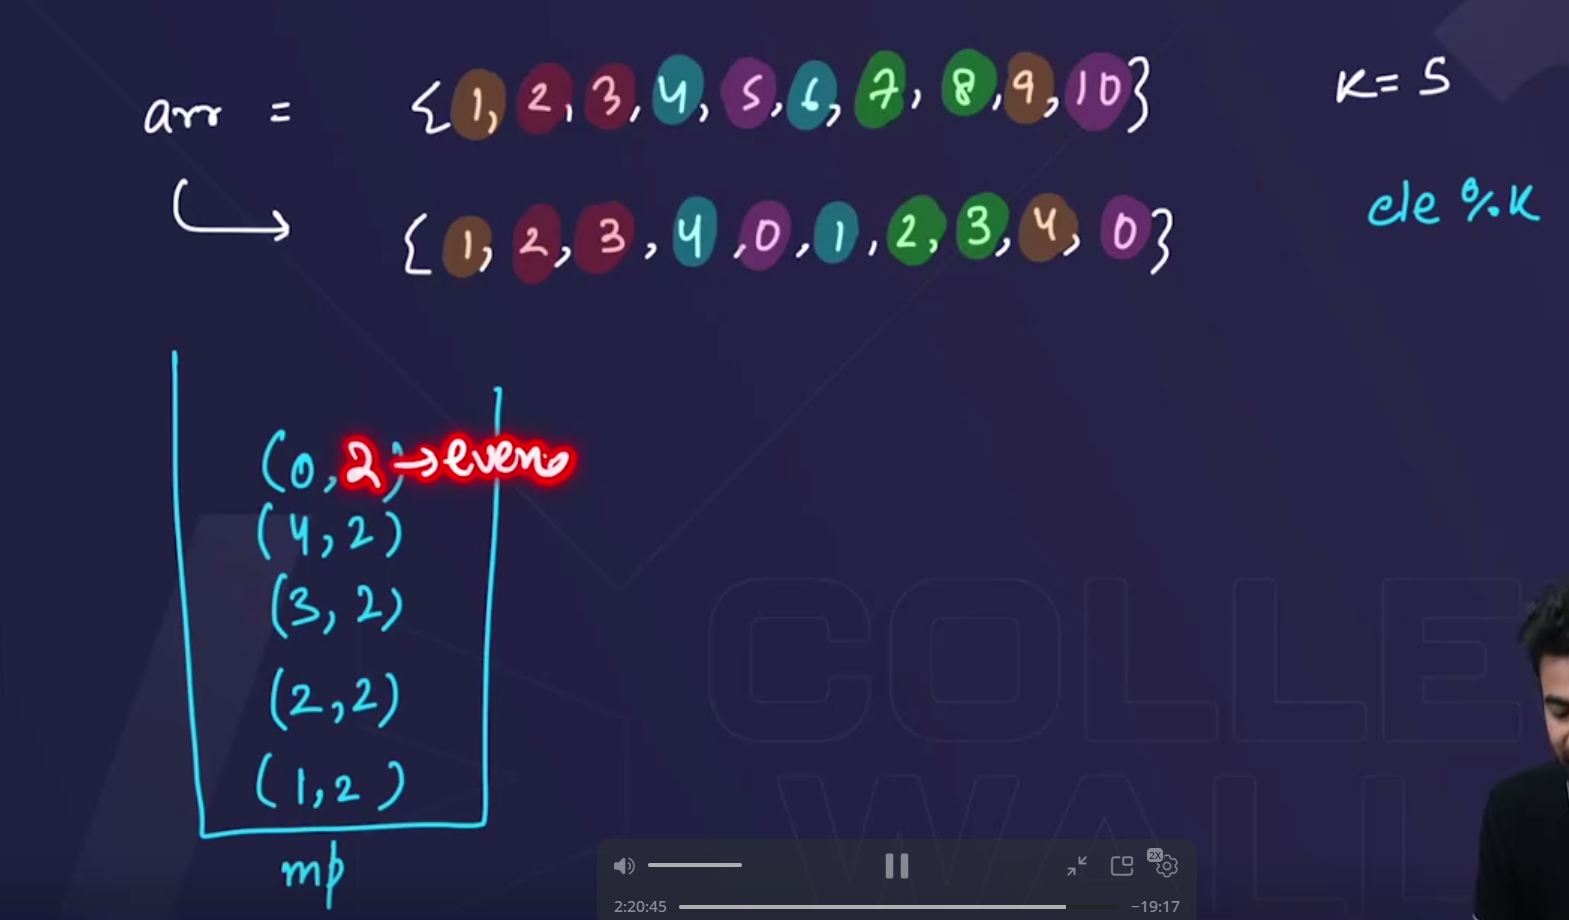 arr = {1, 2, 3, 4, 5, 6, 7, 8, 9, 10} K= 5
{1, 2, 3, 4, 0, 1, 2, 3, 4, 0} ele % K
(0, 2) → even
(4, 2)
(3, 2)
(2, 2)
(1, 2)
mp
COLLE
WALL
2X
2:20:45 −19:17